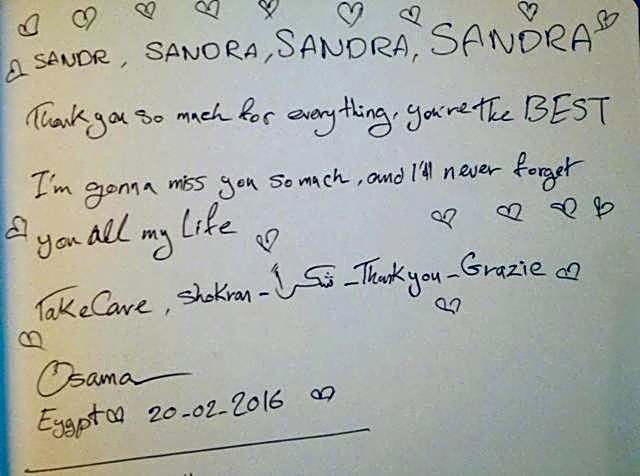 SANDR, SANDRA, SANDRA, SANDRA
Thank you so much for everything, you're The BEST
I'm gonna miss you so much, and I'll never forget
you all my Life
Take Care, Shokran - شكراً - Thank you - Grazie
Osama
Eygpt 20-02-2016